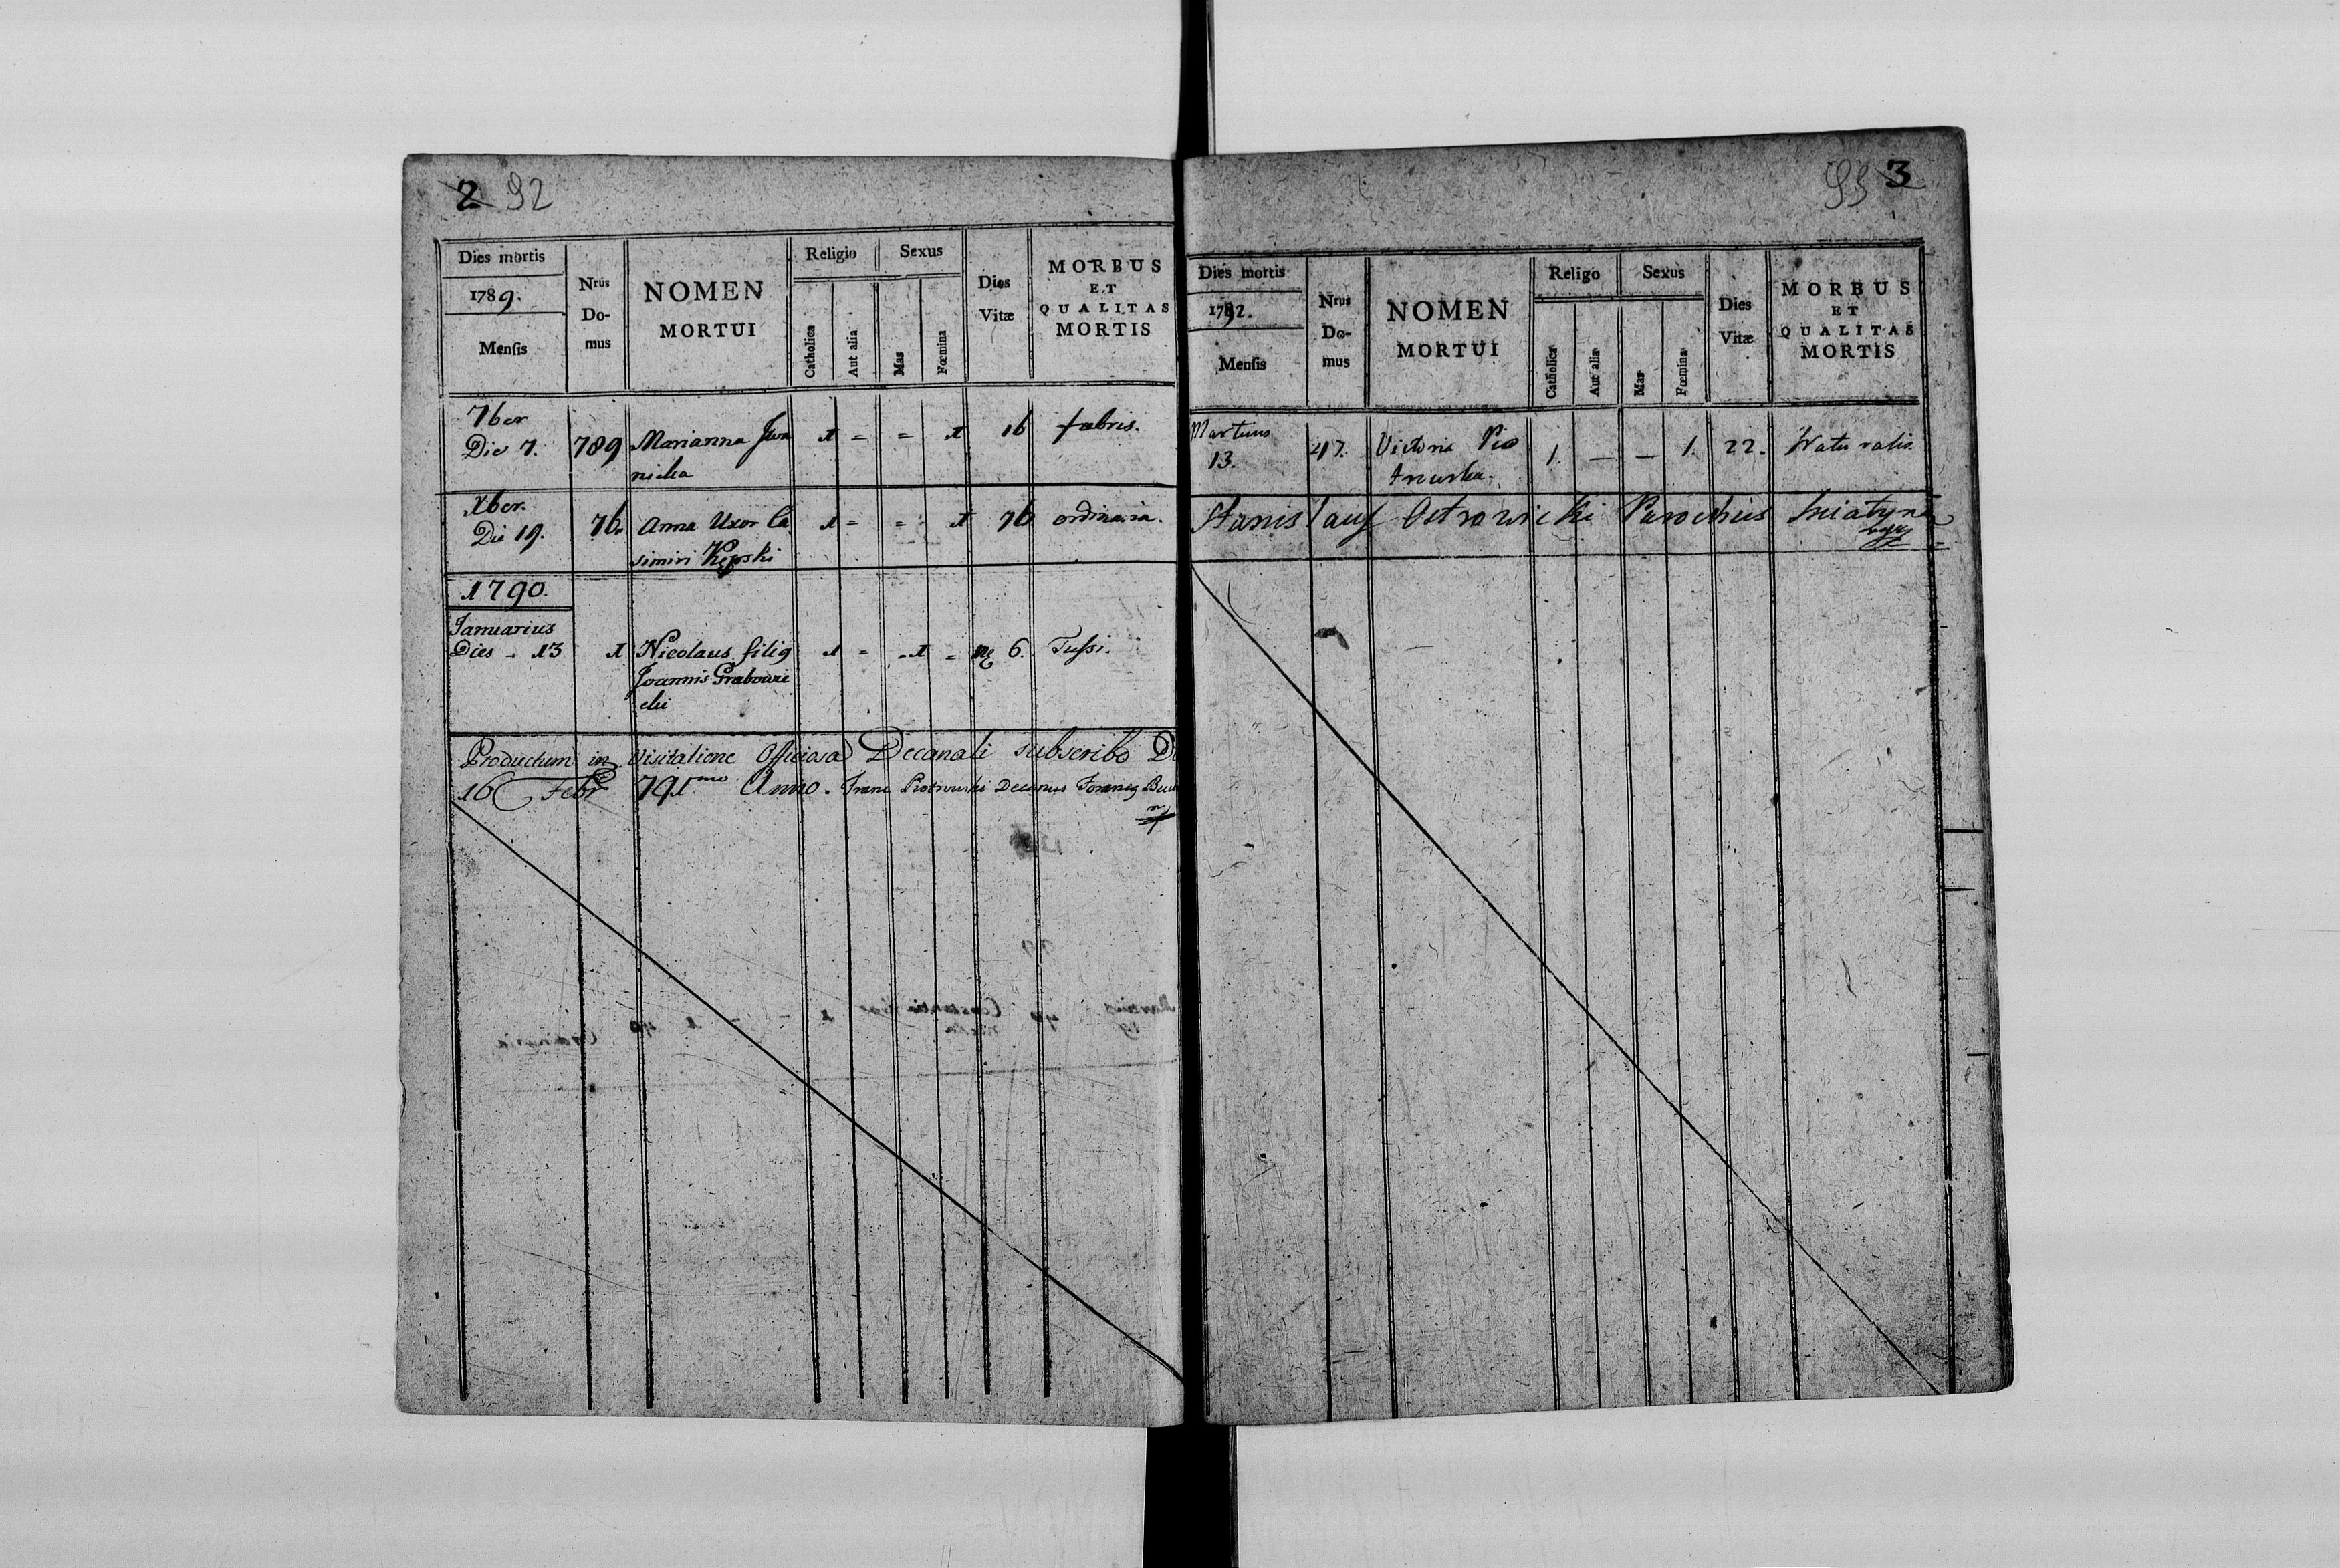 2 92
Dies mortis
1789.
Menſis
Nrus
Do-
mus
NOMEN
MORTUI
Religio
Catholica
Aut alia
Sexus
Mas
Fœmina
Dies
Vitæ
MORBUS
ET
QUALITAS
MORTIS
7ber
Die 7. 789 Marianna 1 = = 1 16 febris.
nicka
Xber.
Die 19. 76. Anna Uxor Ca 1 = = 1 76 ordinaria.
simiri Kępski
1790.
Januarius
Dies - 13 1 Nicolaus filig 1 = - 1 = 6. Tuſsi.
Joannis Grabowie
cki
Productum in Visitatione Officiosa Decanali subscribo
16 Febr 791mo Anno. Franc Piotrowski Decanus Foraneg
93 3
Dies mortis
1792.
Menſis
Nrus
Do-
mus
NOMEN
MORTUI
Religo
Catholica
Aut aliæ
Sexus
Mas
Fœmina
Dies
Vitæ
MORBUS
ET
QUALITAS
MORTIS
Martius
13. 47. Victoria Pio 1. — — 1. 22. Naturalis.
trowska.
Stanislaus Ostrowicki Parochus